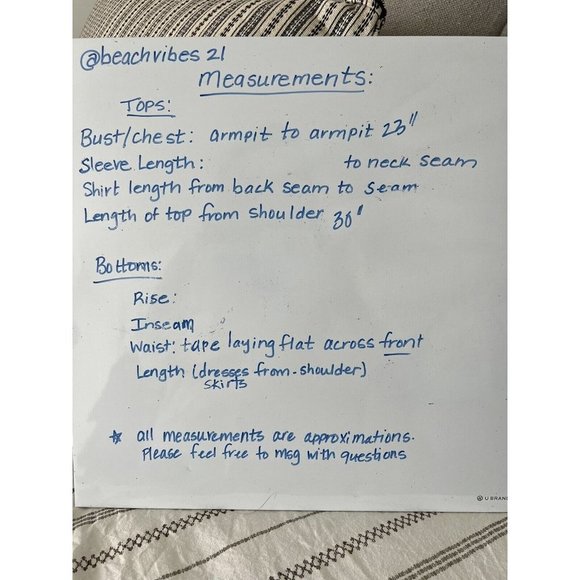 @beachvibes 21
Measurements:
Tops:
Bust/chest: armpit to armpit 23"
Sleeve Length: to neck seam
Shirt length from back seam to seam
Length of top from shoulder 30"
Bottoms:
Rise:
Inseam
Waist: tape laying flat across front
Length (dresses from-shoulder)
skirts
* all measurements are approximations.
Please feel free to msg with questions
U BRAND